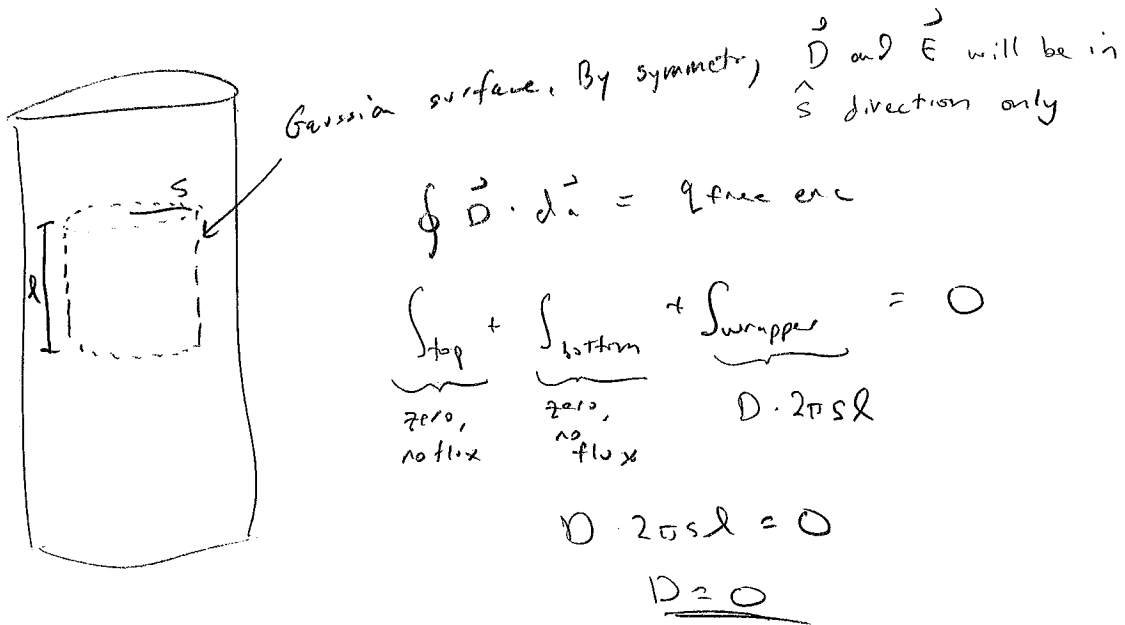 Gaussian surface. By symmetry, D⃗ and E⃗ will be in
ŝ direction only
s
l
∮ D⃗ · da⃗ = q free enc
∫top + ∫bottom + ∫wrapper = 0
zero, no flux
zero, no flux
D · 2πsl
D · 2πsl = 0
D = 0